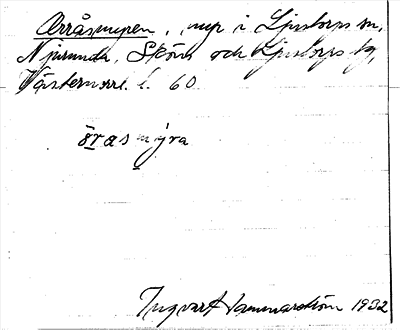 Orråsmyren, myr i Ljustorps sn,
Njurunda, Sköns och Ljustorps tg,
Västernorrl. l. 60
öras myra
Ingvart Hammarström 1932